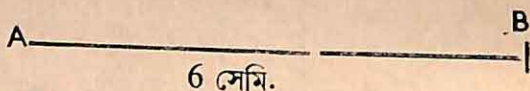 A B
6 সেমি.